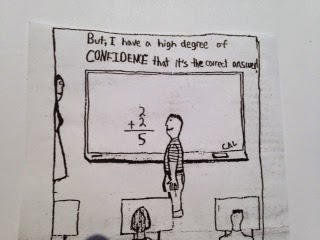 But, I have a high degree of
CONFIDENCE that it's the correct answer!
2
+ 2
5
CAL